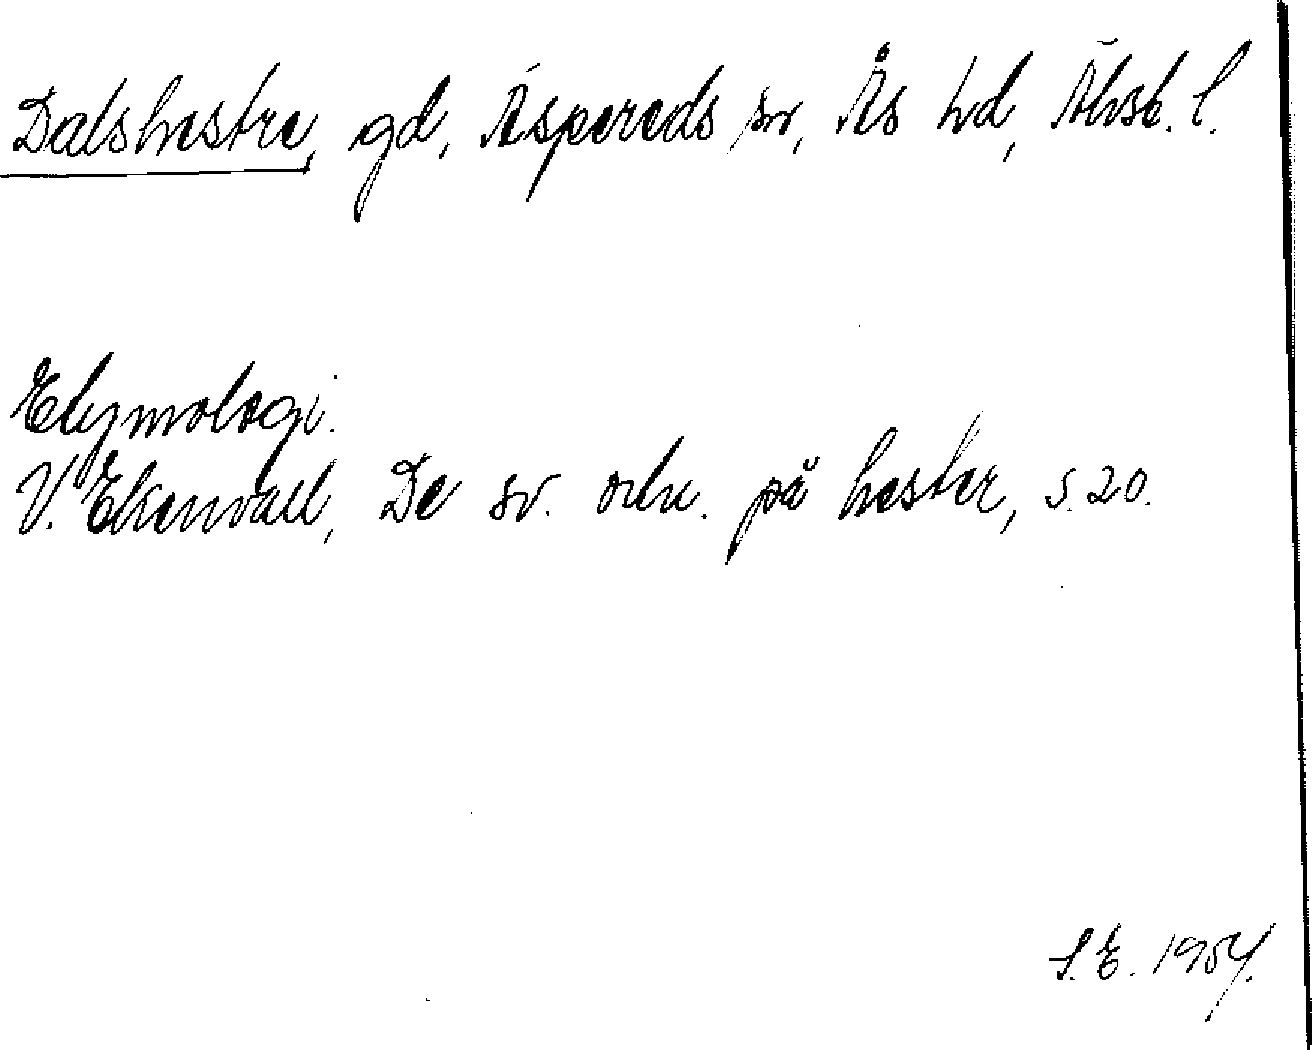 Dalshestre, gd, Äspereds sn, Ås hd, Älvsb. l.
Etymologi.
V. Ekenvall, De sv. ortn. på hester, s. 20.
S. E. 1954.